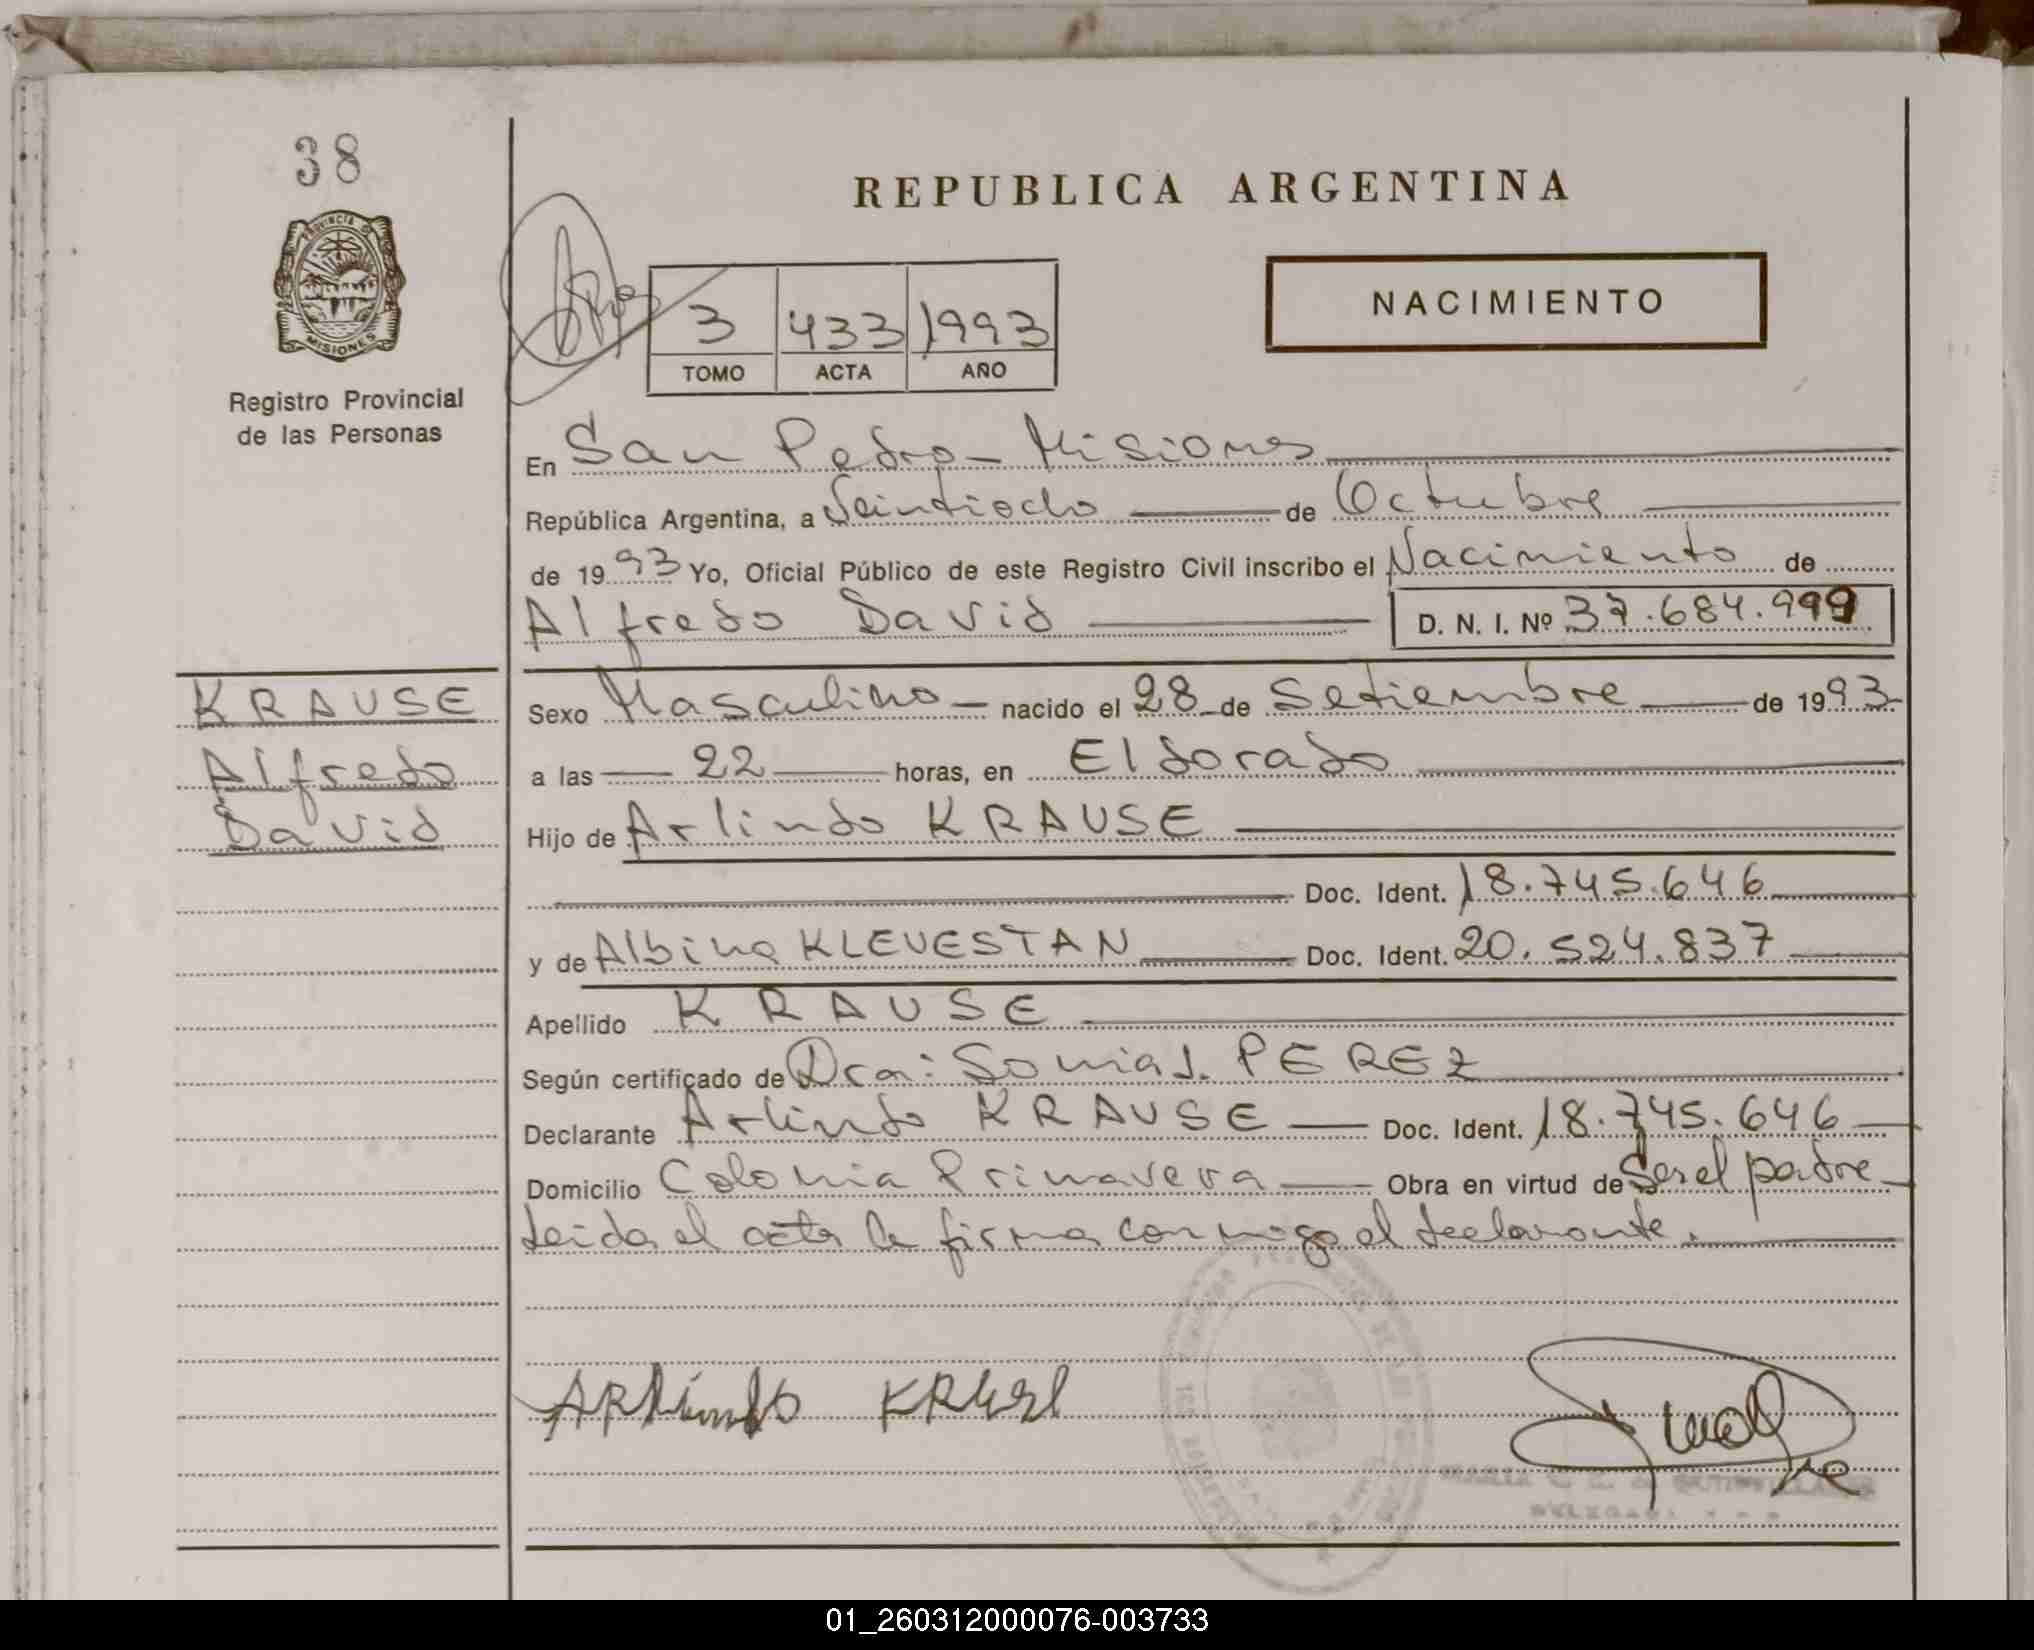 38
PROVINCIA DE
MISIONES
Registro Provincial
de las Personas
REPUBLICA ARGENTINA
NACIMIENTO
3 433 1993
TOMO ACTA AÑO
En San Pedro - Misiones
República Argentina, a Veintiocho de Octubre
de 1993 Yo, Oficial Público de este Registro Civil inscribo el Nacimiento de
Alfredo David D. N. I. Nº 37.684.999
KRAUSE
Alfredo
David
Sexo Masculino - nacido el 28 de Setiembre de 1993
a las 22 horas, en Eldorado
Hijo de Arlindo KRAUSE
Doc. Ident. 18.745.646
y de Albina KLEVESTAN Doc. Ident. 20.524.837
Apellido KRAUSE
Según certificado de Dra: Sonia J. PEREZ
Declarante Arlindo KRAUSE Doc. Ident. 18.745.646
Domicilio Colonia Primavera Obra en virtud de Ser el padre
Leida el acta la firma conmigo el declarante.
ARlindo KRAUSE
MARIA
01_260312000076-003733